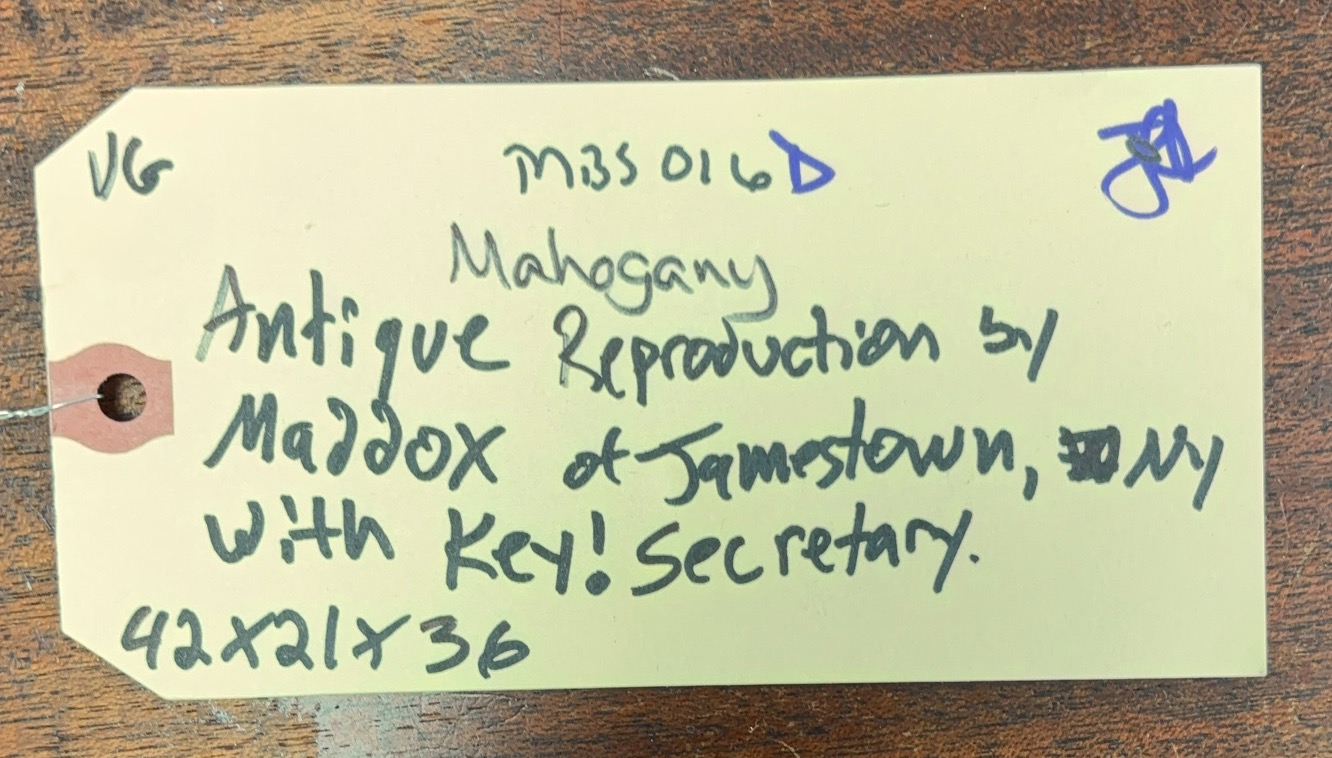 VG MBS 016 D
Mahogany
Antique Reproduction by
Maddox of Jamestown, NY
with Key! Secretary.
42x21x36